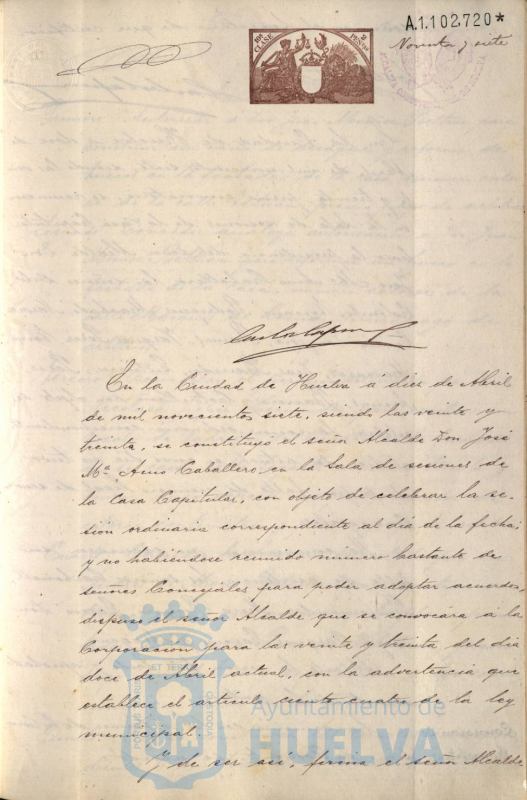 A.1.102.720*
Noventa y siete
10ª CLASE
2 PESETAS
En la Ciudad de Huelva á diez de Abril
de mil novecientos siete, siendo las veinte y
treinta, se constituyó el señor Alcalde Don José
Mª Caballero, en la Sala de sesiones de
la Casa Capitular, con objeto de celebrar la se-
sión ordinaria correspondiente al dia de la fecha;
y no habiéndose reunido número bastante de
señores Concejales para poder adoptar acuerdos,
dispuso el señor Alcalde que se convocára á la
Corporacion para las veinte y treinta del dia
doce de Abril actual, con la advertencia que
establece el artículo ciento cuatro de la ley
municipal.
Y de ser así, firma el señor Alcalde
Ayuntamiento de
HUELVA